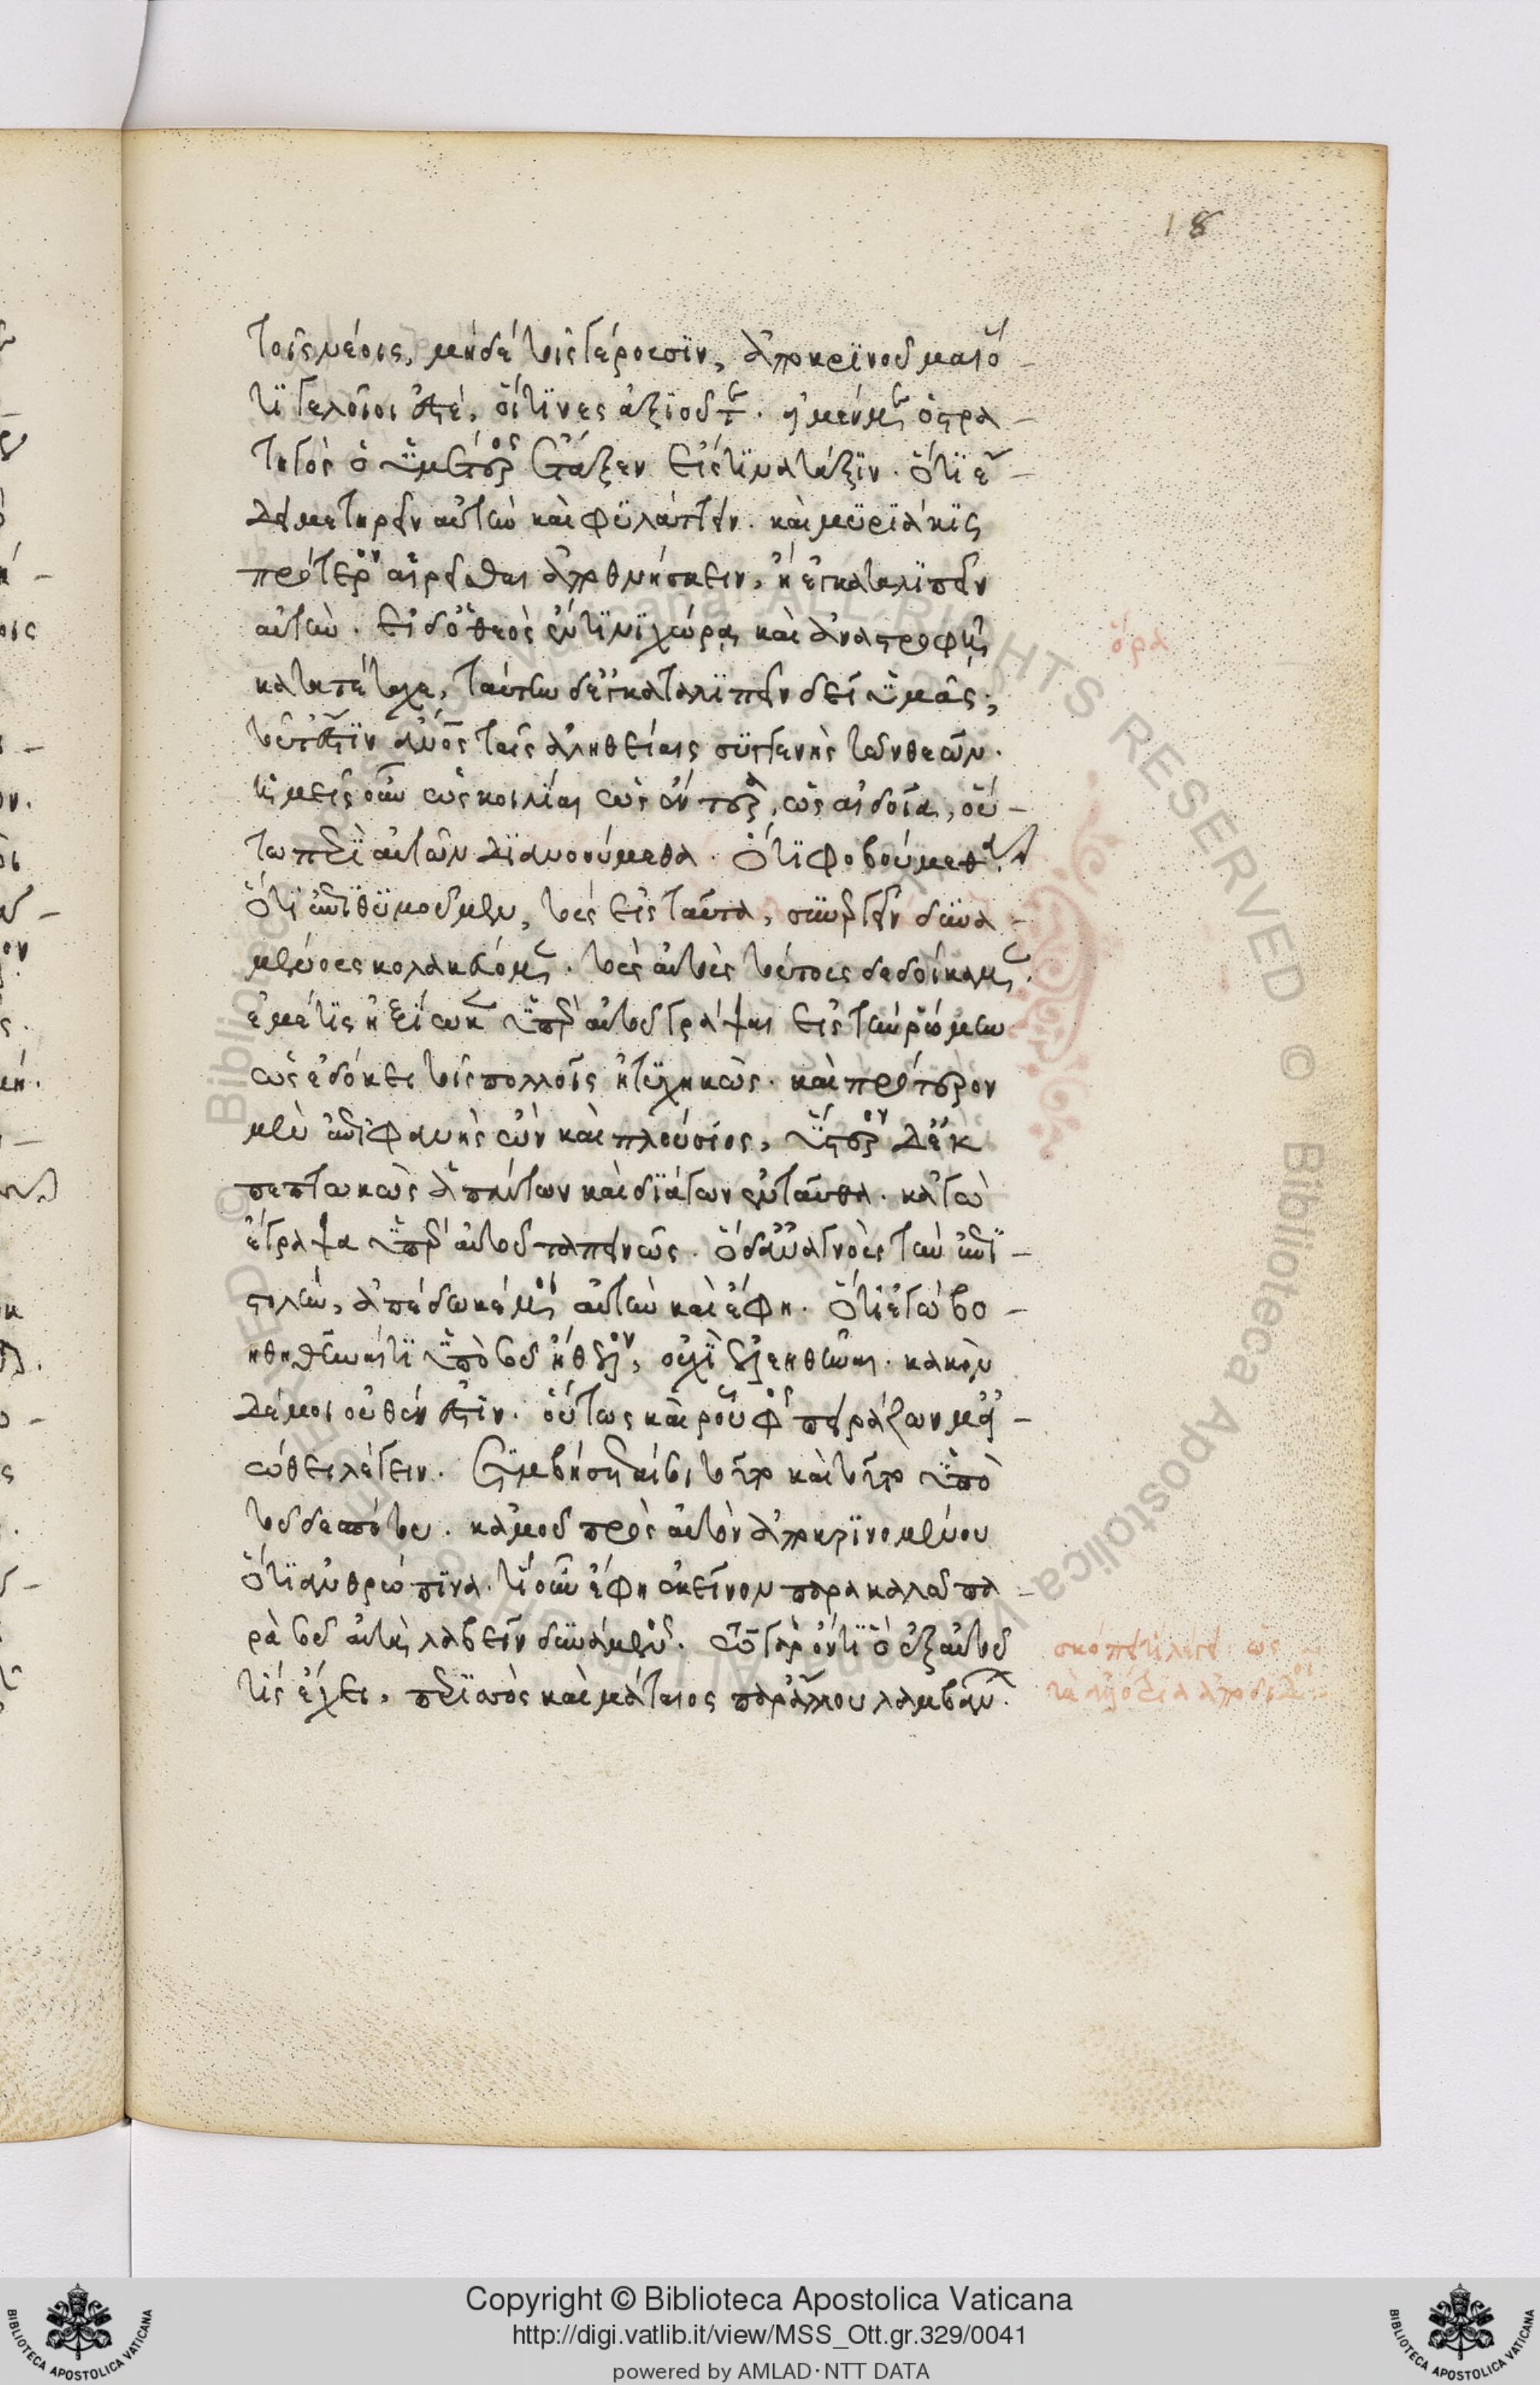 18
τοῖς νέοις, μηδὲ τοῖς γέρουσϊν, ἀποκρίνουμαι ὅ-
τϊ γελοῖοι ἐστὲ, οἵτϊνες ἀξϊοῦτε. εἰ μέν με ὁ στρα-
τηγὸς ὁ ὑμέτερος ἔταξεν εἴς τϊνα τάξϊν. ὅτϊ ἔ-
δει με τηρεῖν αὐτὴν καὶ φϋλάττειν. καὶ μϋρϊάκϊς
πρότερον αἱρεῖσθαι ἀποθνήσκειν, ἢ ἐγκαταλϊπεῖν
αὐτήν. εἰ δ' ὁ θεὸς ἔν τϊνϊ χώρᾳ καὶ ἀναστροφῇ
κατατέταχε, ταύτην δ' ἐγκαταλϊπεῖν δεῖ ὑμᾶς;
τοῦτ' ἔστϊν ἄνος ταῖς ἀληθείαις σϋγγενὴς τῶν θεῶν.
ἡμεῖς οὖν ὡς κοιλίαι ὡς ἔντερα, ὡς αἰδοῖα, οὕ-
τω περὶ αὐτῶν δϊανοούμεθα. ὅτϊ φοβούμεθα.
ὅτϊ ἐπϊθϋμοῦμεν, τοὺς εἰς ταῦτα, σϋνεργεῖν δϋνα-
μένους κολακεύομεν. τοὺς αὐτοὺς τούτους δεδοίκαμεν.
ἐμέ τϊς ἠξίωκεν ὑπὲρ αὐτοῦ γράψαι εἰς τὴν ῥώμην
ὡς ἐδόκει τοῖς πολλοῖς ἠτϋχηκώς. καὶ πρότερον
μὲν ἐπϊφανὴς ὢν καὶ πλούσϊος, ὕστερον δ' ἐκ
πεπτωκὼς ἁπάντων καὶ δϊάγων ἐνταῦθα. κἀγὼ
ἔγραψα ὑπὲρ αὐτοῦ ταπεινῶς. ὁ δ' ἀναγνοὺς τὴν ἐπϊ-
στολὴν, ἀπέδωκέ μοι αὐτὴν καὶ ἔφη. ὅτι ἐγὼ βο-
ηθηθῆναί τϊ ὑπὸ σοῦ ἤθελον, οὐχὶ ἐλεηθῆναι. κακὸν
δέ μοι οὐθέν ἐστϊν. οὕτως καὶ ροῦφος πειράζων μ' εἰ-
ώθει λέγειν. σϋμβήσεταί σοι τοῦτο καὶ τοῦτο ὑπὸ
τοῦ δεσπότου. κἀμοῦ πρὸς αὐτὸν ἀποκρϊνομένου
ὅτϊ ἀνθρώπϊνα. τί οὖν ἔφη ἐκεῖνον παρακαλῶ πα-
ρὰ σοῦ αὐτὰ λαβεῖν δϋνάμενος. τῷ γὰρ ὄντϊ ὃ ἐξ αὑτοῦ
τϊς ἔχει, περϊσσὸς καὶ μάταιος παρ' ἄλλου λαμβάνων.
ὅρα
σκόπει τί λέγει ὡς
Copyright © Biblioteca Apostolica Vaticana
http://digi.vatlib.it/view/MSS_Ott.gr.329/0041
powered by AMLAD·NTT DATA
BIBLIOTECA APOSTOLICA VATICANA
BIBLIOTECA APOSTOLICA VATICANA